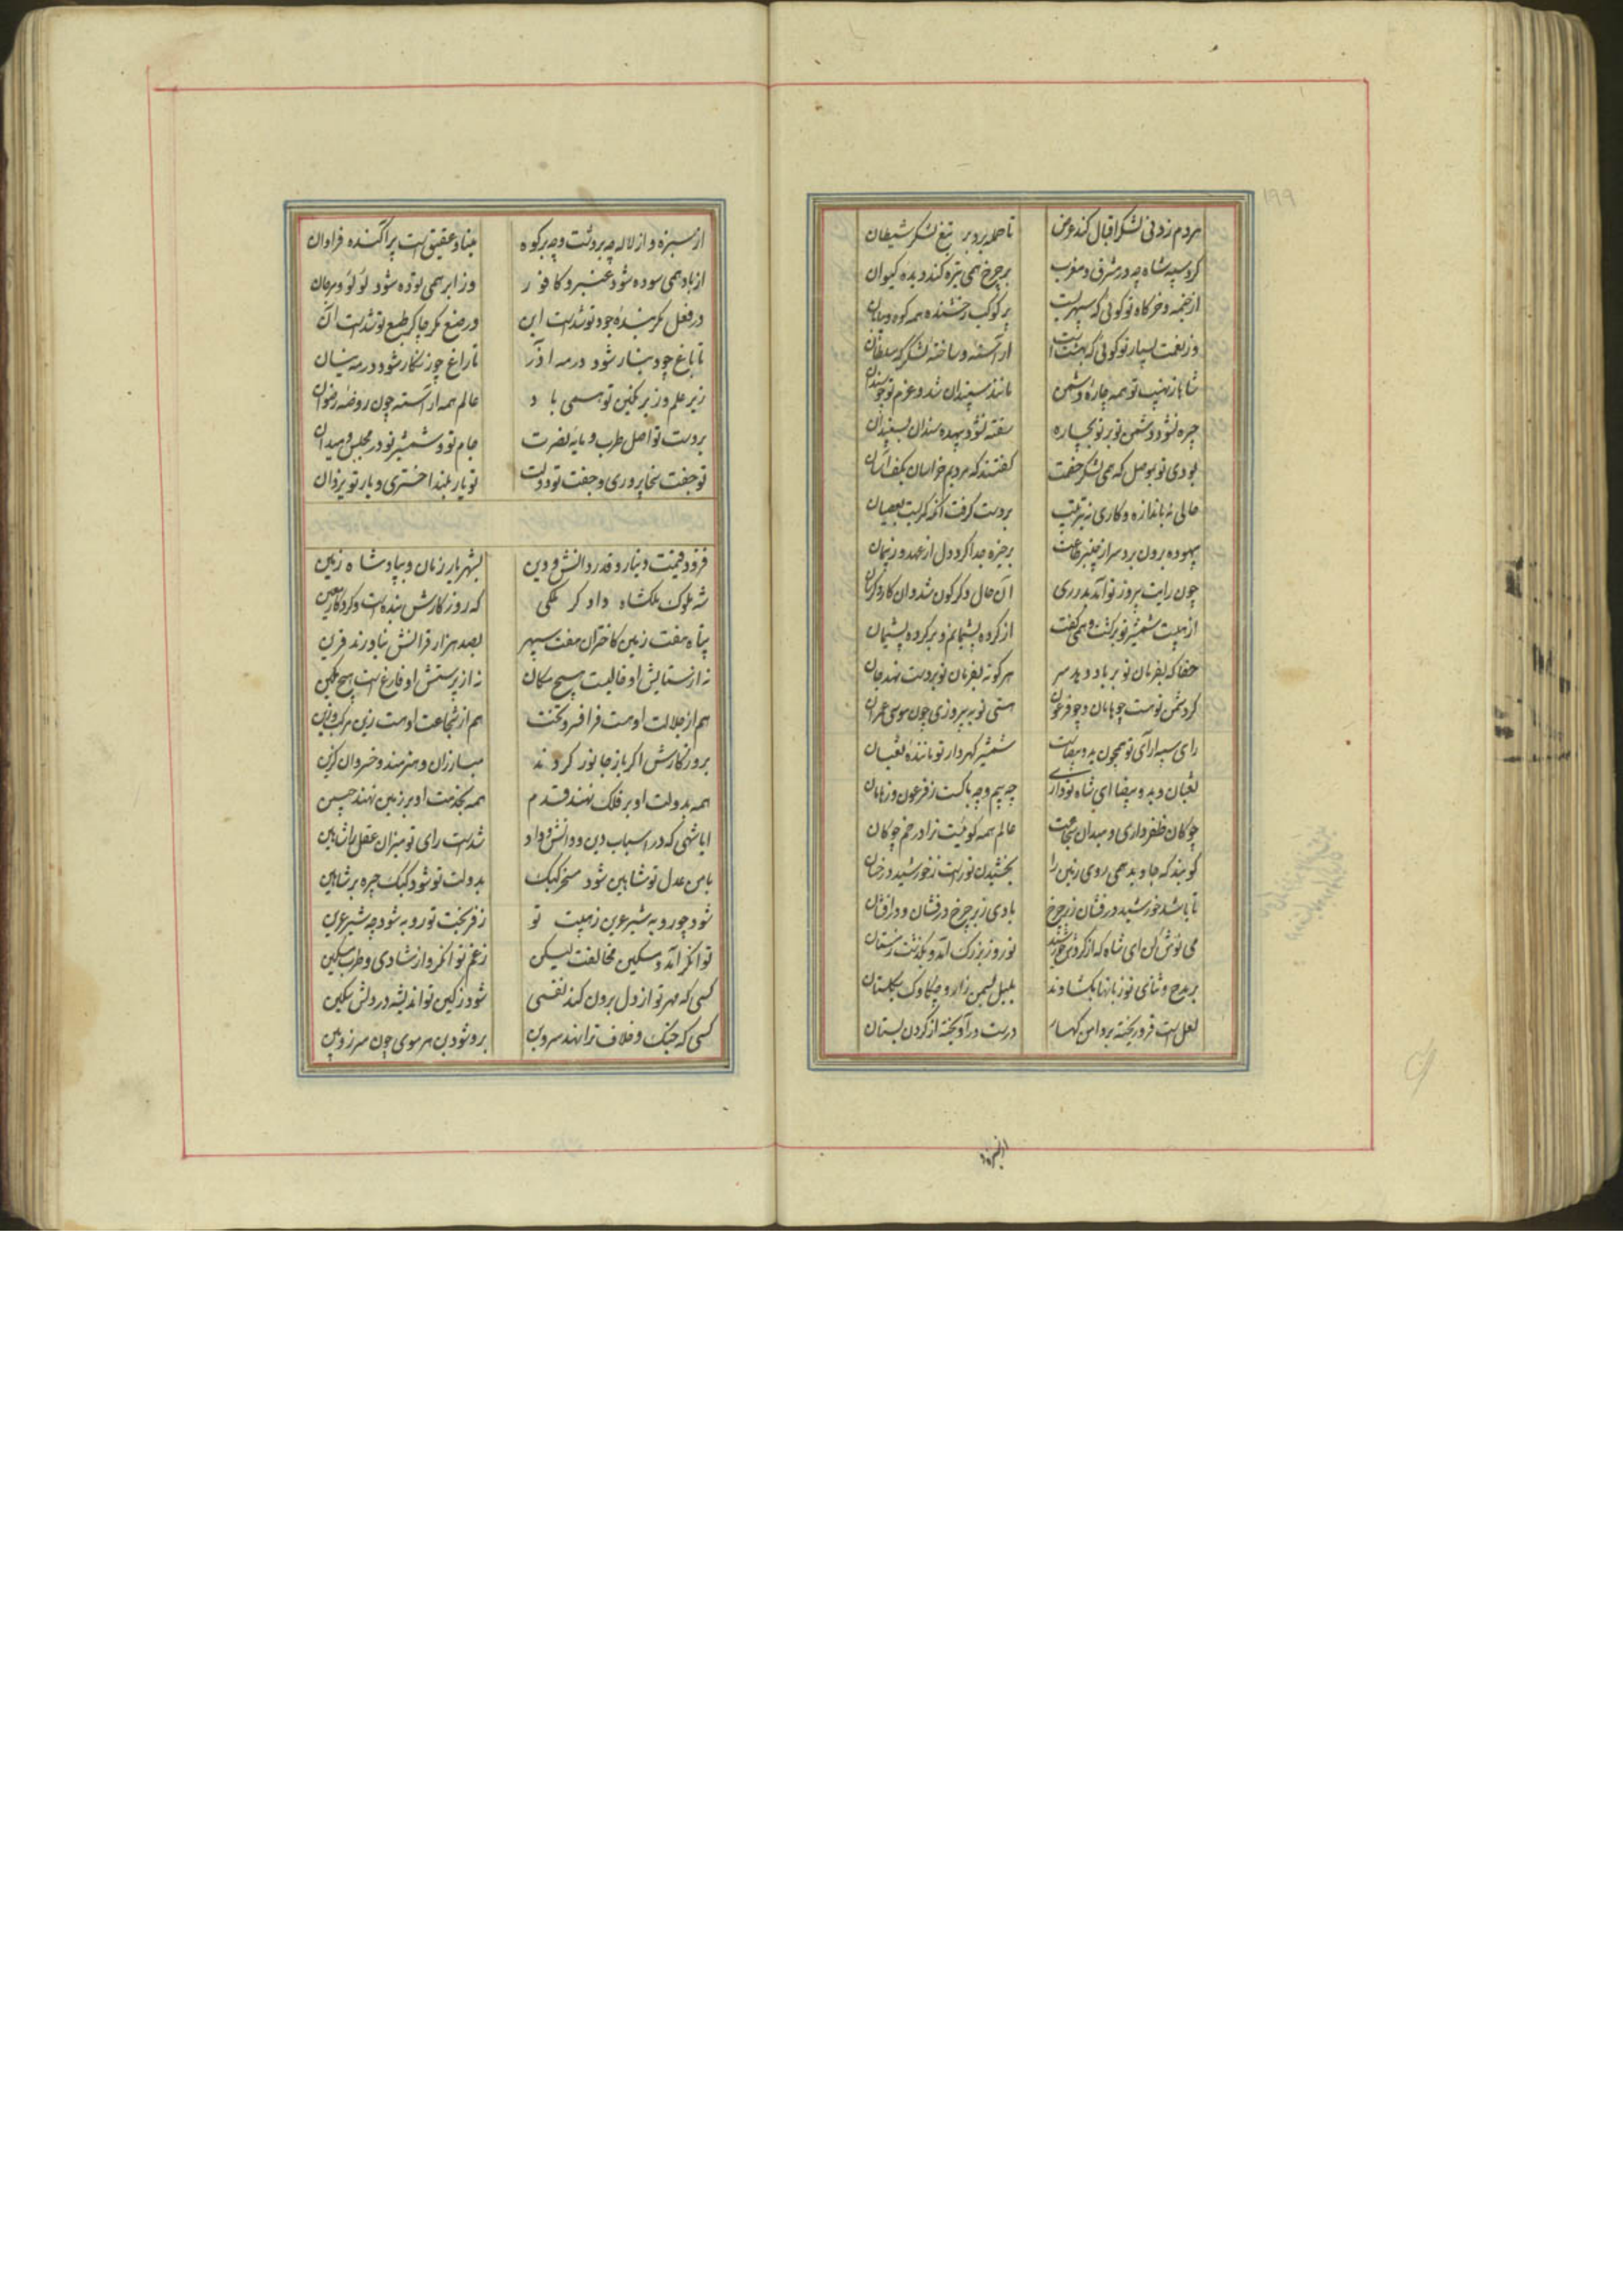 ۱۹۹
هردم زدنی لشکر اقبال کند عرض
تا حمله برد بر تبع لشکر شیطان
گرد سپه شاه چه در مشرق و مغرب
بر چرخ همی تیره کند دیده کیوان
از خیمه و خرگاه تو گوئی که سپهریست
پر کوکب رخشنده همه کوه و بیابان
وز نعمت بسیار تو گوئی که بهشت است
آراسته و ساخته لشکرگه سلطان
شاها ز نهیب تو همه چاره دشمن
مانند سپندان شد و عزم تو چو سندان
چیره نشود دشمن تو بر تو بچاره
سفته نشود بیهده سندان بسپندان
بودی تو بموصل که همی لشکر خصمت
گفتند که مردیم خراسان بکف آسان
حالی نه باندازه و کاری نه بترتیب
بر دست گرفت آنکه کمر بست بعصیان
بیهوده برون برد سر از چنبر طاعت
بر خیره جدا کرد دل از عهد و ز پیمان
چون رایت پیروز تو آمد بدر ری
آن حال دگرگون شد و آن کار دگرسان
از هیبت شمشیر تو برگشت و همی گفت
از کرده پشیمانم و بر کرده پشیمان
حقا که بفرمان تو بر باد دهد سر
هرکو نه بفرمان تو بر دست نهد جان
گر دشمن تو هست چو هامان و چو فرعون
هستی تو به پیروزی چون موسی عمران
رای سپه آرای تو همچون ید بیضاست
شمشیر گهردار تو ماننده ثعبان
ثعبان و ید بیضا ای شاه تو داری
چه بیم و چه باکست ز فرعون و ز هامان
چوگان ظفر داری و میدان شجاعت
عالم همه گوئیست ترا در خم چوگان
گویند که جاوید همی روی زمین را
بخشیدن نور است ز خورشید درخشان
تا باشد خورشید درفشان ز بر چرخ
بادی ز بر چرخ درفشان و درافشان
می نوش کن ای شاه که از گردش خورشید
نوروز بزرگ آمد و بگذشت زمستان
بر مدح و ثنای تو زبانها بگشادند
بلبل بسمن زار و چکاوک بگلستان
لعل است فرو ریخته بر دامن کهسار
در است درآویخته از گردن بستان
از سبزه و از لاله چه بر دشت و چه بر کوه
مینا و عقیق است پراکنده فراوان
از باد همی سوده شود عنبر و کافور
وز ابر همی توده شود لؤلؤ و مرجان
در فعل مگر بنده جود تو شدست این
در صنع مگر چاکر طبع تو شدست آن
تا باغ چو دینار شود در مه آذر
تا راغ چو زنگار شود در مه نیسان
زیر علم و زیر نگین تو همی باد
عالم همه آراسته چون روضه رضوان
بر دست تو اصل طرب و مایه نصرت
جام تو و شمشیر تو در مجلس و میدان
تو جفت سخا پروری و جفت تو دولت
تو یار بلند اختری و یار تو یزدان
فزود قیمت دینار و قدر دانش و دین
بشهریار زمان و بپادشاه زمین
شه ملوک ملکشاه دادگر ملکی
که روزگارش بنده است و کردگار معین
پناه هفت زمین کاختران هفت سپهر
بصد هزار قرانش نیاورند قرین
نه از ستایش او خالیست هیچ مکان
نه از پرستش او فارغ است هیچ مکین
هم از جلالت اوست فر افسر و تخت
هم از شجاعت اوست زین مرکب و زین
بروزگارش اگر باز جانور گردند
مبارزان و هنرمند و خسروان گزین
همه بدولت او بر فلک نهند قدم
همه بخدمت او بر زمین نهند جبین
ایا شهی که در اسباب دین و دانش و داد
شدست رای تو میزان عقل را شاهین
بامن عدل تو شاهین شود مسخر کبک
بدولت تو شود کبک چیره بر شاهین
شود چو روبه شیر عرین ز هیبت تو
ز فر بخت تو روبه شود چه شیر عرین
توانگر آمد و مسکین مخالفت لیکن
ز غم توانگر و از شادی و طرب مسکین
کسی که مهر تو از دل برون کند نفسی
شود ز کین تو اندیشه در دلش سکین
کسی که جنگ و خلاف ترا نهد سر و بن
برو شود بن هر موی چون سر زوبین